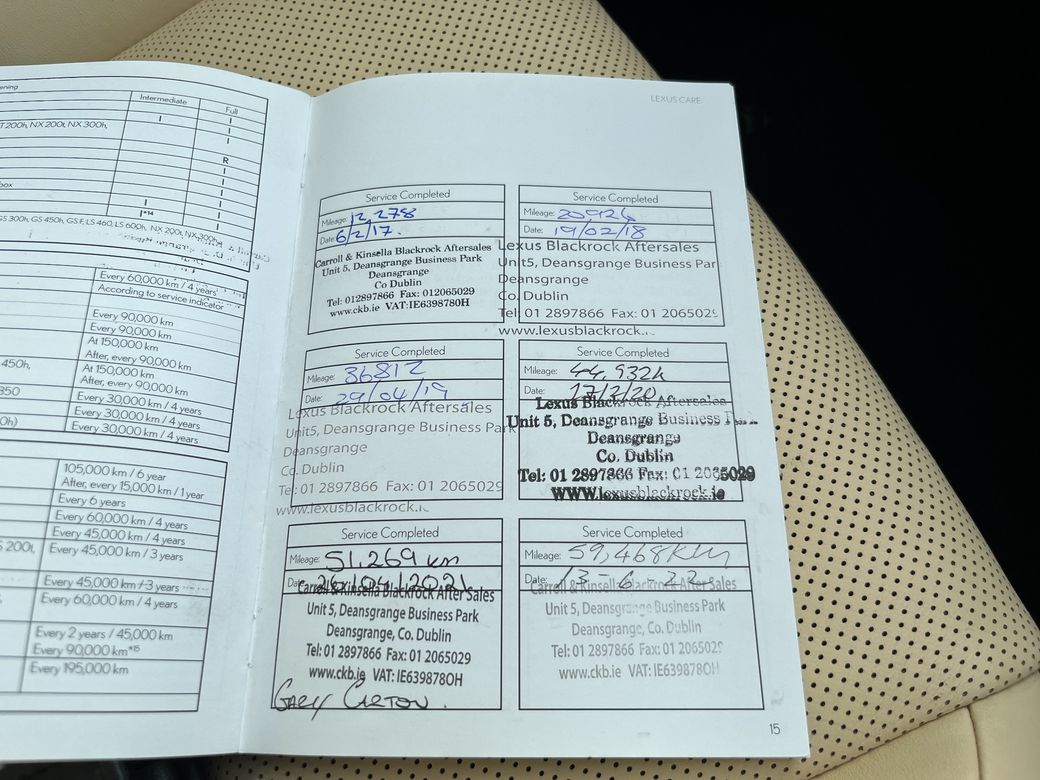 ening
Intermediate Full
I I
T 200h, NX 200t, NX 300h, I
I
R
I
I
box I
I I
I*14 I
GS 300h, GS 450h, GS F, LS 460, LS 600h, NX 200t, NX 300h
Every 60,000 km / 4 years
According to service indicator
Every 90,000 km
Every 90,000 km
At 150,000 km
After, every 90,000 km
450h, At 150,000 km
After, every 90,000 km
350 Every 30,000 km / 4 years
Every 30,000 km / 4 years
0h) Every 30,000 km / 4 years
105,000 km / 6 year
After, every 15,000 km / 1 year
Every 6 years
Every 60,000 km / 4 years
Every 45,000 km / 4 years
S 200t, Every 45,000 km / 3 years
Every 45,000 km / 3 years
Every 60,000 km / 4 years
Every 2 years / 45,000 km
Every 90,000 km*15
Every 195,000 km
LEXUS CARE
Service Completed
Mileage: 12,278
Date: 6/2/17.
Carroll & Kinsella Blackrock Aftersales
Unit 5, Deansgrange Business Park
Deansgrange
Co Dublin
Tel: 012897866 Fax: 012065029
www.ckb.ie VAT:IE6398780H
Service Completed
Mileage: 20926
Date: 19/02/18
Lexus Blackrock Aftersales
Unit5, Deansgrange Business Par
Deansgrange
Co. Dublin
Tel: 01 2897866 Fax: 01 2065029
www.lexusblackrock.
Service Completed
Mileage: 36812
Date: 29/04/19
Lexus Blackrock Aftersales
Unit5, Deansgrange Business Park
Deansgrange
Co. Dublin
Tel: 01 2897866 Fax: 01 2065029
www.lexusblackrock.
Service Completed
Mileage: 44,932k
Date: 17/2/20
Lexus Blackrock Aftersales
Unit 5, Deansgrange Business Park
Deansgrange
Co. Dublin
Tel: 01 2897866 Fax: 01 2065029
WWW.lexusblackrock.ie
Service Completed
Mileage: 51,269 km
Date: 26/04/2021
Carroll & Kinsella Blackrock After Sales
Unit 5, Deansgrange Business Park
Deansgrange, Co. Dublin
Tel: 01 2897866 Fax: 01 2065029
www.ckb.ie VAT: IE6398780H
Gary Carton.
Service Completed
Mileage: 59,468KM
Date: 13 6 22
Carroll & Kinsella Blackrock After Sales
Unit 5, Deansgrange Business Park
Deansgrange, Co. Dublin
Tel: 01 2897866 Fax: 01 2065029
www.ckb.ie VAT: IE6398780H
15